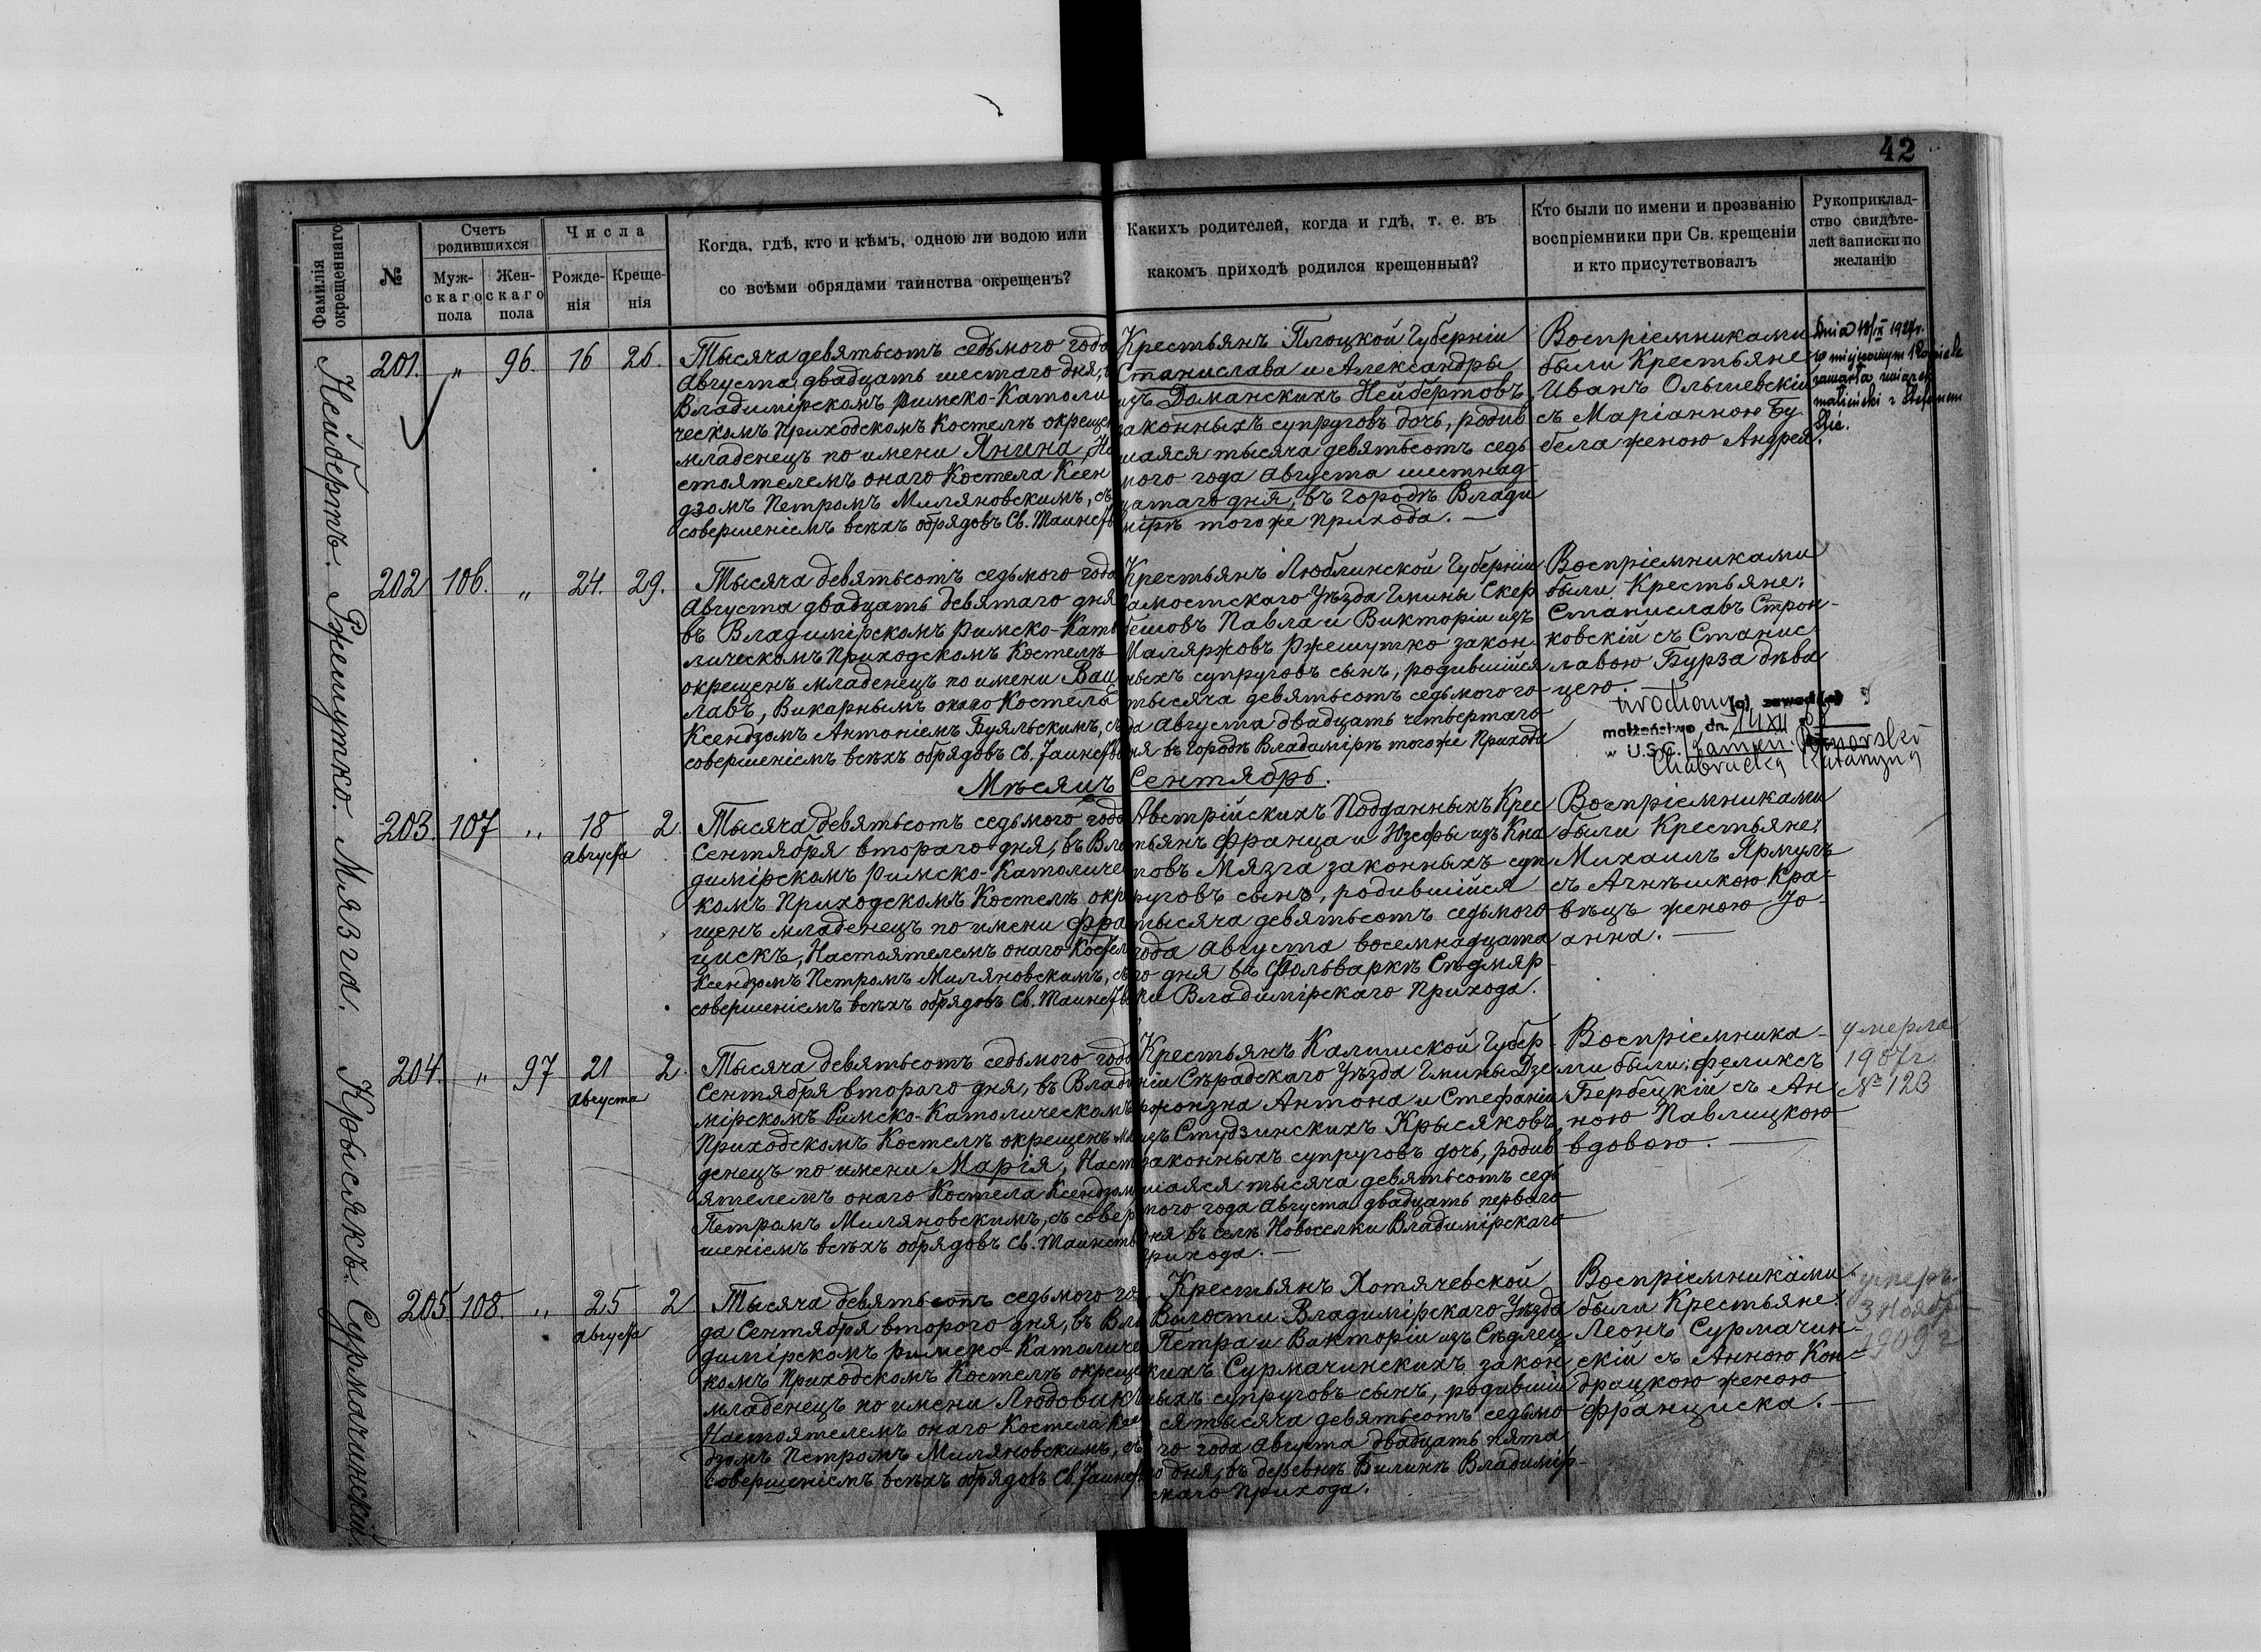 42
Фамилія окрещеннаго
№
Счетъ родившихся
Муж-
скаго
пола
Жен-
скаго
пола
Числа
Рожде-
нія
Креще-
нія
Когда, гдѣ, кто и кѣмъ, одною ли водою или
со всѣми обрядами таинства окрещенъ?
Какихъ родителей, когда и гдѣ, т. е. въ
какомъ приходѣ родился крещенный?
Кто были по имени и прозванію
воспріемники при Св. крещеніи
и кто присутствовалъ
Рукоприклад-
ство свидѣте-
лей записки по
желанію
Нейбертъ.
201. „ 96. 16 26.
Тысяча девятьсотъ седьмого года
Августа двадцать шестаго дня,
Владимірскомъ Римско-Католи
ческомъ Приходскомъ Костелѣ окрещен
младенецъ по имени Янина, На
стоятелемъ онаго Костела Ксен
дзомъ Петромъ Миляновскимъ, съ
совершеніемъ всѣхъ обрядовъ Св. Таинств
Крестьянъ Плоцкой Губерніи
Станислава и Александры
изъ Доманскихъ Нейбертовъ,
законныхъ супруговъ дочь, родив
шаяся тысяча девятьсотъ седь
мого года Августа шестнад
цатаго дня, въ городѣ Влади
мірѣ того же прихода. —
Воспріемниками
были Крестьяне
Иванъ Ольшевскій
съ Маріанною Бу-
бела женою Андрея.
Dnia 18/IX 1927 r.
w miejscowym Kościele
zawarła związek
małżeński z Stefanem
Ржешутко.
202 106. „ 24. 29.
Тысяча девятьсотъ седьмого года
Августа двадцать девятаго дня
въ Владимірскомъ Римско-Като
лическомъ Приходскомъ Костелѣ
окрещенъ младенецъ по имени Вац
лавъ, Викарнымъ онаго Костела
Ксендзомъ Антоніемъ Буяльскимъ, съ
совершеніемъ всѣхъ обрядовъ Св. Таинств
Крестьянъ Люблинской Губерніи
Замостскаго Уѣзда Гмины Скер
бешовъ Павла и Викторіи изъ
Маляржовъ Ржешутко закон
ныхъ супруговъ сынъ, родившійся
тысяча девятьсотъ седьмого го
да Августа двадцать четвертаго
дня въ городѣ Владимірѣ того же Прихода
Воспріемниками
были Крестьяне:
Станиславъ Строн-
ковскій съ Станис
лавою Бурза дѣви
цею.
(a) zawarł(a)
małżeństwo dn.
w U.S.C. Kamień Pomorski
Katarzyną
Мѣсяцъ Сентябрь.
Мязга.
203. 107 „ 18 Августа 2.
Тысяча девятьсотъ седьмого года
Сентября втораго дня, въ Вла
димірскомъ Римско-Католичес
комъ Приходскомъ Костелѣ окре
щенъ младенецъ по имени Фран
цискъ, Настоятелемъ онаго Костела
Ксендзомъ Петромъ Миляновскимъ, съ
совершеніемъ всѣхъ обрядовъ Св. Таинств
Австрійскихъ Подданныхъ Крес
тьянъ Франца и Юзефы изъ Кна
повъ Мязга законныхъ суп
руговъ сынъ, родившійся
тысяча девятьсотъ седьмого
года Августа восемнадцата
го дня въ Фольваркѣ Сѣдмяр
ки Владимірскаго Прихода.
Воспріемниками
были Крестьяне:
Михаилъ Ярмулъ
съ Агнѣшкою Кра-
вѣцъ женою Іо-
анна. —
Крысякъ.
204. „ 97 21 Августа 2.
Тысяча девятьсотъ седьмого года
Сентября втораго дня, въ Влади
мірскомъ Римско-Католическомъ
Приходскомъ Костелѣ окрещенъ мла
денецъ по имени Марія, Насто
ятелемъ онаго Костела Ксендзомъ
Петромъ Миляновскимъ, съ совер
шеніемъ всѣхъ обрядовъ Св. Таинств
Крестьянъ Калишской Губер-
ніи Сѣрадскаго Уѣзда Гмины Дзе
рожонзна Антона и Стефаніи
изъ Студзинскихъ Крысяковъ,
законныхъ супруговъ дочь, родив
шаяся тысяча девятьсотъ седь
мого года Августа двадцать перваго
дня въ селѣ Новоселки Владимірскаго
прихода. —
Воспріемника-
ми были: Феликсъ
Бербецкій съ Ан
ною Павлицкою
вдовою. —
умерла
1907 г.
№ 123
Сурмачинскій.
205. 108. „ 25 Августа 2
Тысяча девятьсотъ седьмого го
да Сентября второго дня, въ Вла
димірскомъ Римско-Католичес
комъ Приходскомъ Костелѣ окреще
младенецъ по имени Людовикъ
Настоятелемъ онаго Костела Ксен
дзомъ Петромъ Миляновскимъ, съ
совершеніемъ всѣхъ обрядовъ Св. Таинств
Крестьянъ Хотячевской
Волости Владимірскаго Уѣзда
Петра и Викторіи изъ Сѣдлец
кихъ Сурмачинскихъ закон
ныхъ супруговъ сынъ, родившій
ся тысяча девятьсотъ седьмо
го года Августа двадцать пята
го дня, въ деревнѣ Билинѣ Владимір-
скаго прихода.
Воспріемниками
были Крестьяне:
Леонъ Сурмачин-
скій съ Анною Кон-
драцкою женою
Франциска. —
умеръ
3 Ноября
1909 г